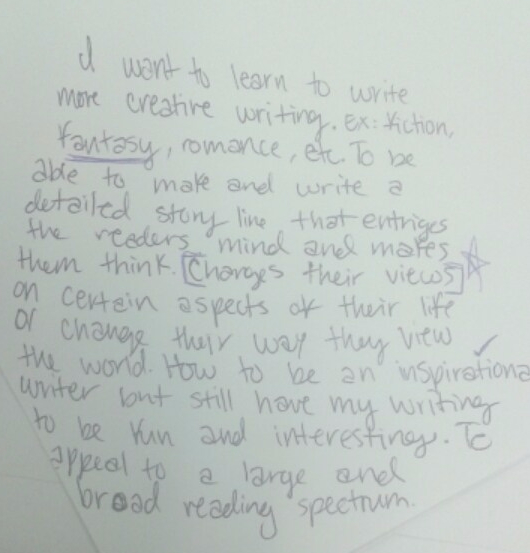 I want to learn to write
more creative writing. Ex: fiction,
fantasy, romance, etc. To be
able to make and write a
detailed story line that entriges
the readers mind and makes
them think. [Changes their views]
on certein aspects of their life
or change their way they view
the world. How to be an inspirationa
writer but still have my writing
to be fun and interesting. To
appeal to a large and
broad reading spectrum.